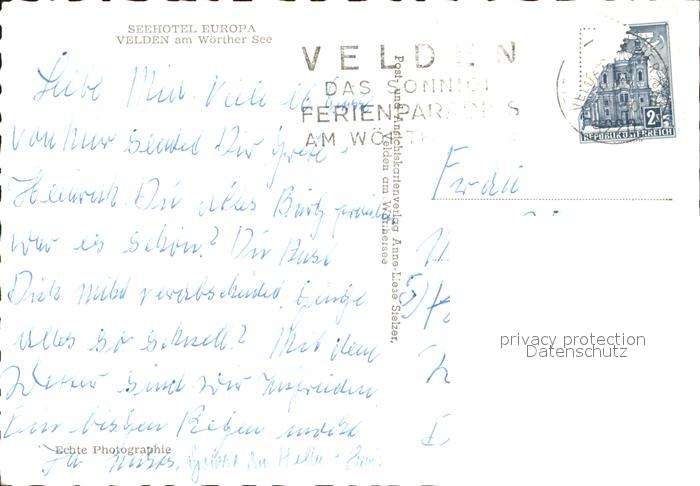 SEEHOTEL EUROPA
VELDEN am Wörther See
VELDEN
DAS SONNIGE
FERIENPARADIES
AM WÖRT
2 S
REPUBLIK ÖSTERREICH
Post- und Ansichtskartenverlag Anne-Liese Stelzer,
Velden am Wörthersee
Liebe Viele lb
von hier sendet Dir Grete
Heinrich. Du alles
war es schön? Du hast
Dich nicht verabschiedet, ginge
alles so schnell? Mit dem
Wetter sind wir zufrieden
Ein bisschen Regen macht
ja nichts.
Frau
privacy protection
Datenschutz
Echte Photographie